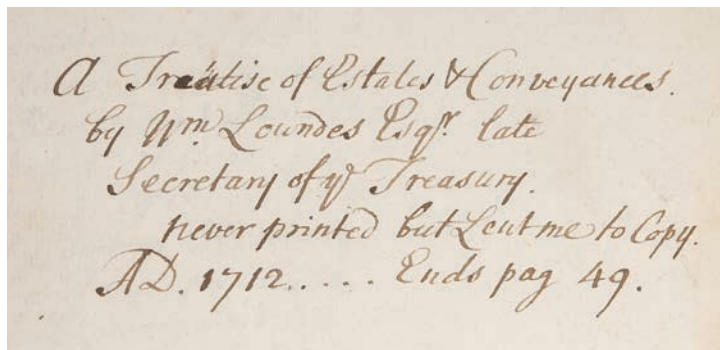 A Treatise of Estates & Conveyances.
by Wm. Loundes Esqr. late
Secretary of ye Treasury.
never printed but Lent me to Copy.
AD. 1712..... Ends pag 49.